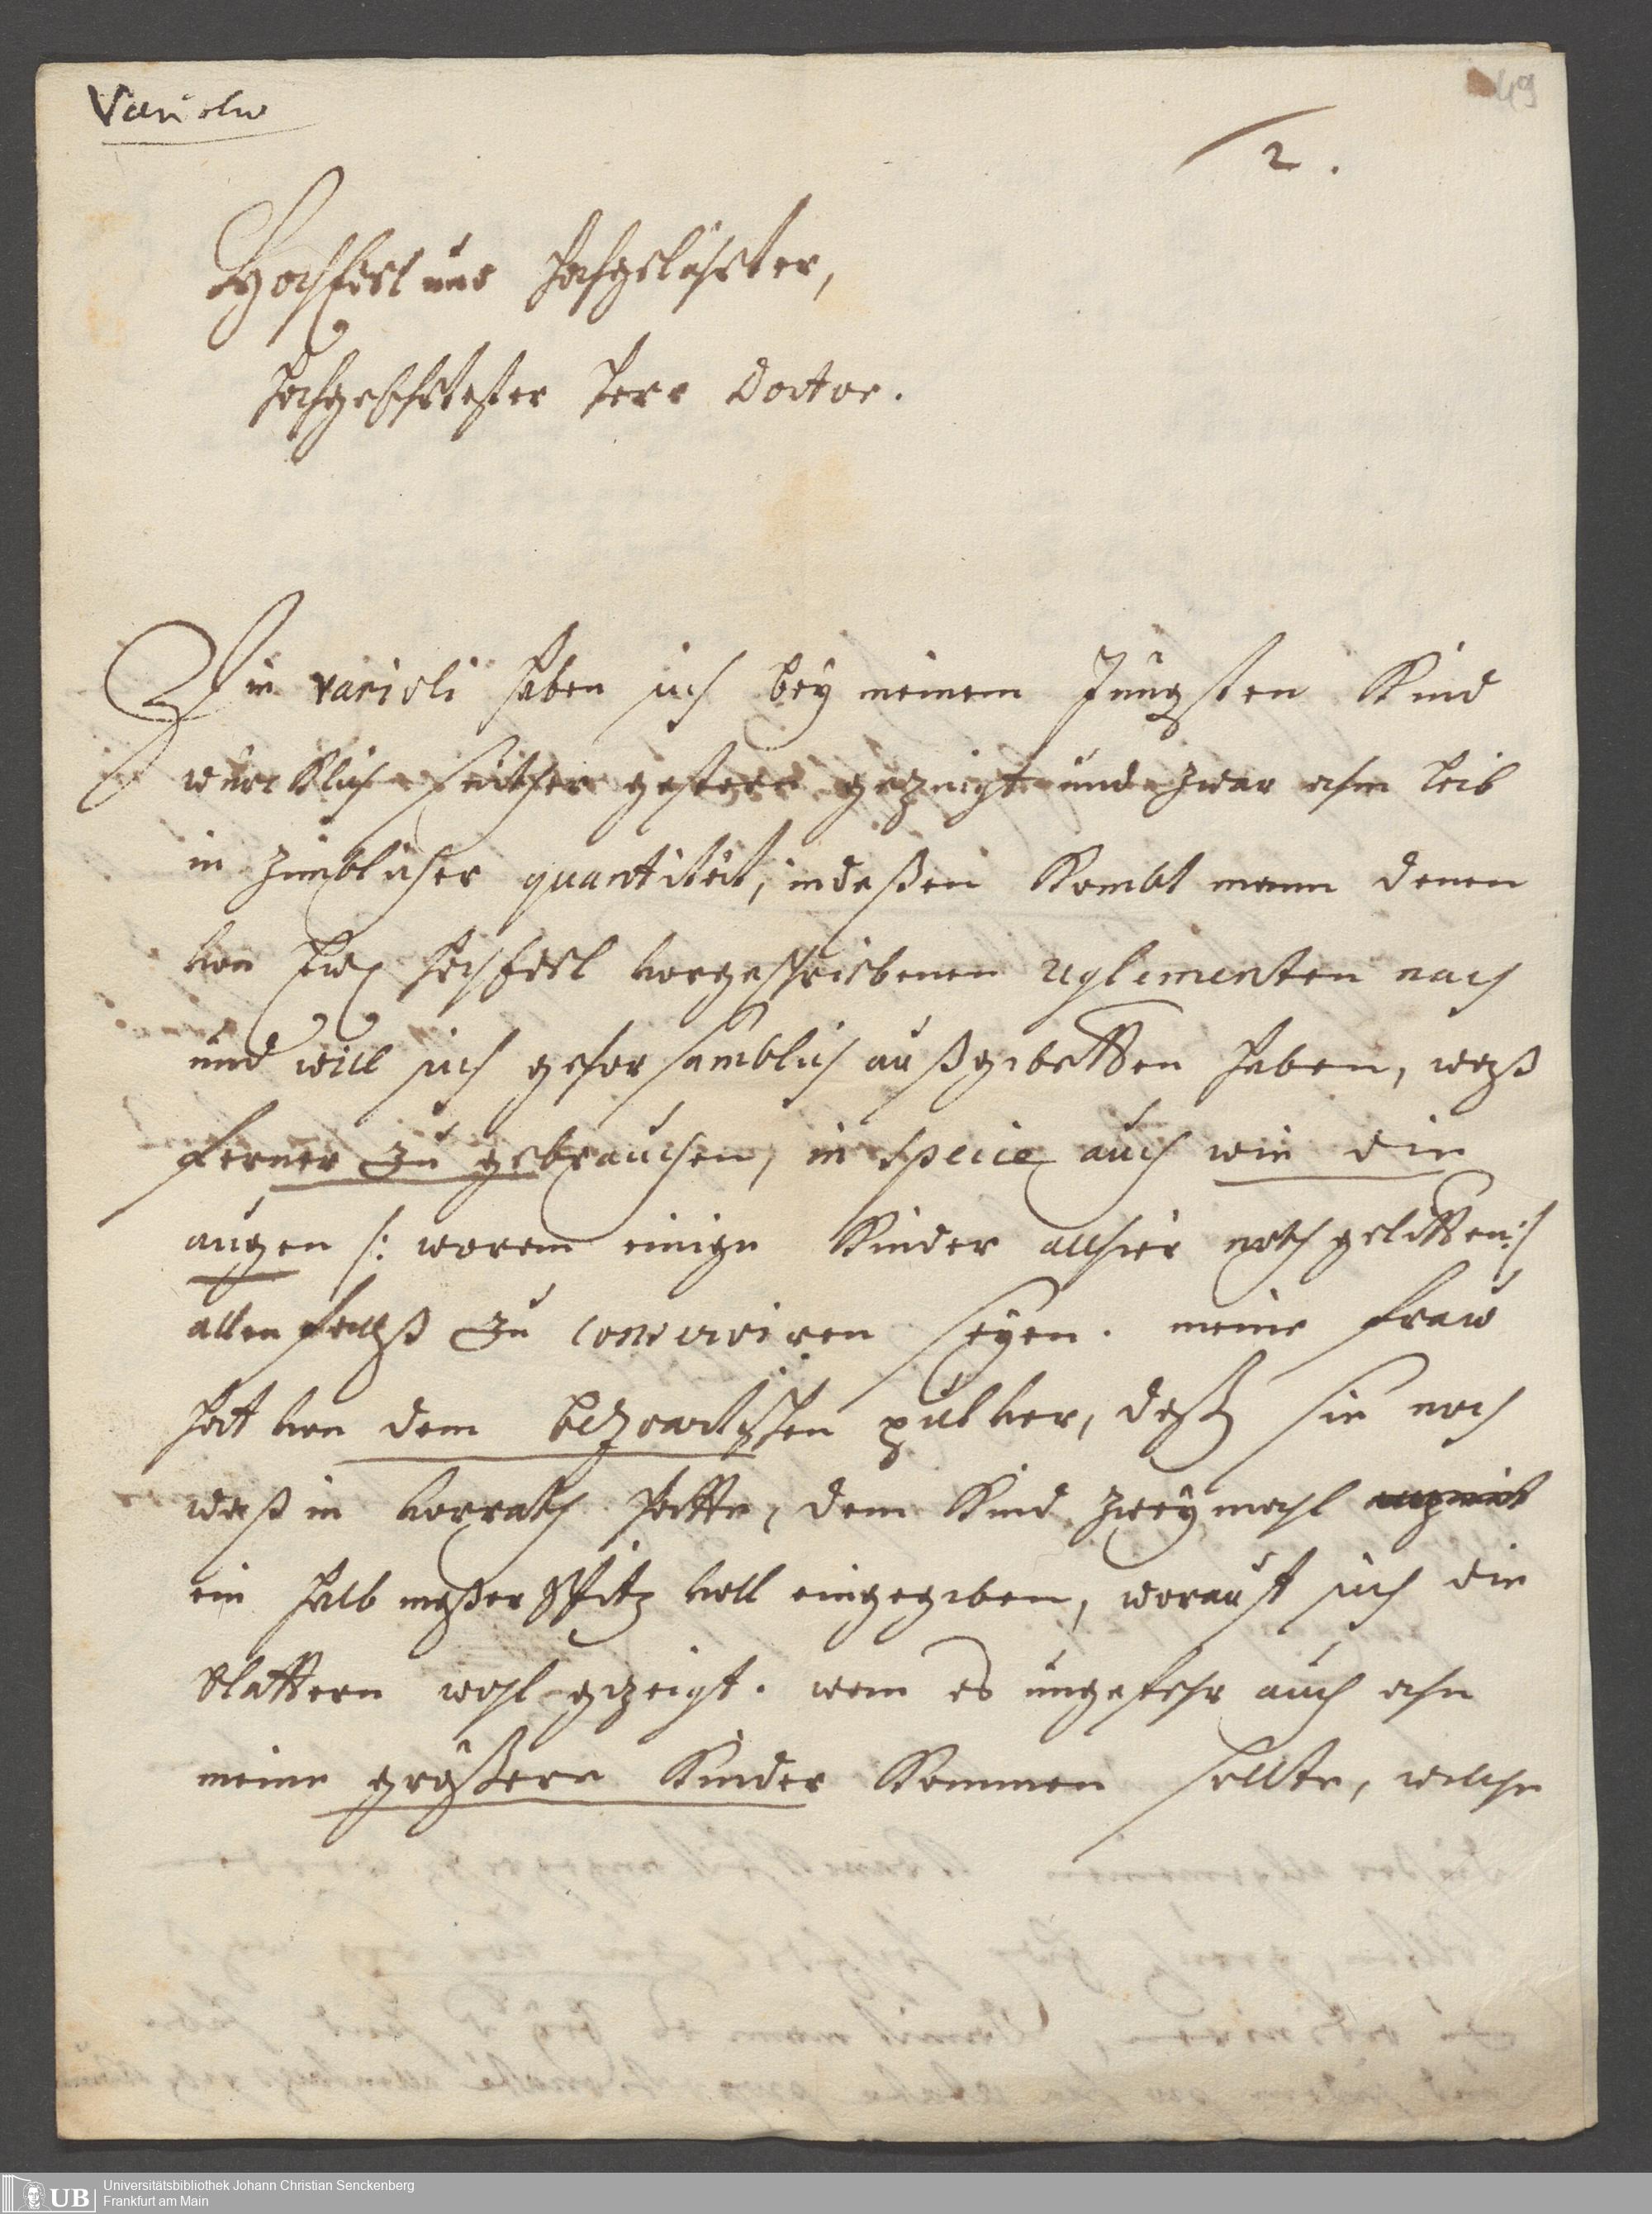 Variolae
49
2.
HochEdel und Hochgelährter,
Hochgeehrtester Herr Doctor.
Die varioli haben sich bey meinem Jüngsten Kind
würcklich seither gestern gezeigt und zwar ahm Leib
in zimblicher quantität, indeßen Kombt mann denen
von Ew. HochEdel vorgeschriebenen reglementen nach
und will sich gehorsamblich außgebetten haben, waß
ferner zu gebrauchen, in specie auch wie die
augen /: woran einige Kinder allhier noth gelitten :/
allenfallß zu conserviren seyen. meine fraw
hat von dem bezoardischen pulver, deßen sie noch
waß in vorrath hatte, dem Kind zweymahl
ein halb meßer Spitz voll eingegeben, worauf sich die
blattern wohl gezeigt. wann es ungefehr auch ahn
meine größere Kinder Kommen sollte, welche
UB
Universitätsbibliothek Johann Christian Senckenberg
Frankfurt am Main